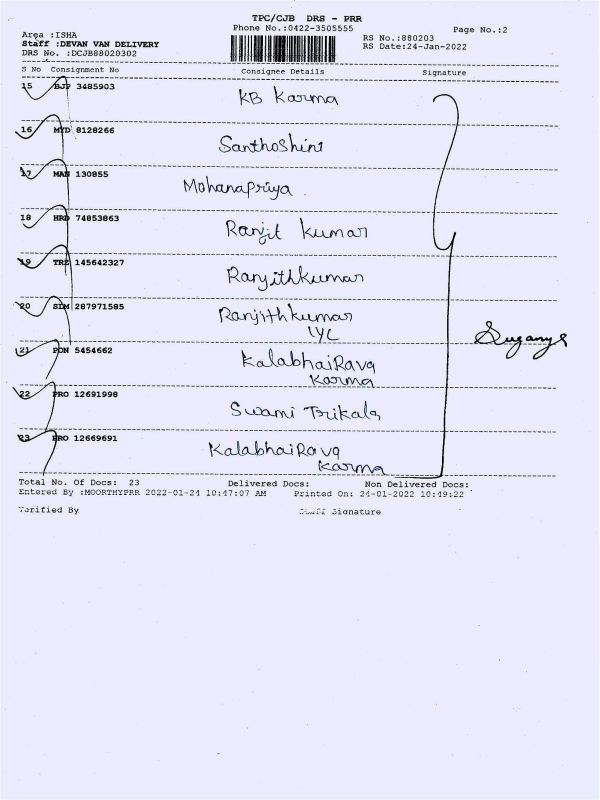 TPC/CJB DRS - PRR
Phone No.:0422-3505555 Page No.:2
Area :ISHA RS No.:880203
Staff :DEVAN VAN DELIVERY RS Date:24-Jan-2022
DRS No. :DCJB88020302
S No Consignment No Consignee Details Signature
15 BJP 3485903 KB Karma
16 MYD 8128266 Santhoshini
17 MAN 130855 Mohanapriya
18 HRD 74853863 Ranjit Kumar
19 TRZ 145642327 Ranjithkumar
20 SLM 287971585 Ranjithkumar
IYC
Suganya
21 PDN 5454662 KalabhaiRava
Karma
22 PRO 12691998 Swami Trikala
23 PRO 12669691 KalabhaiRava
Karma
Total No. Of Docs: 23 Delivered Docs: Non Delivered Docs:
Entered By :MOORTHYPRR 2022-01-24 10:47:07 AM Printed On: 24-01-2022 10:49:22
Verified By Staff Signature